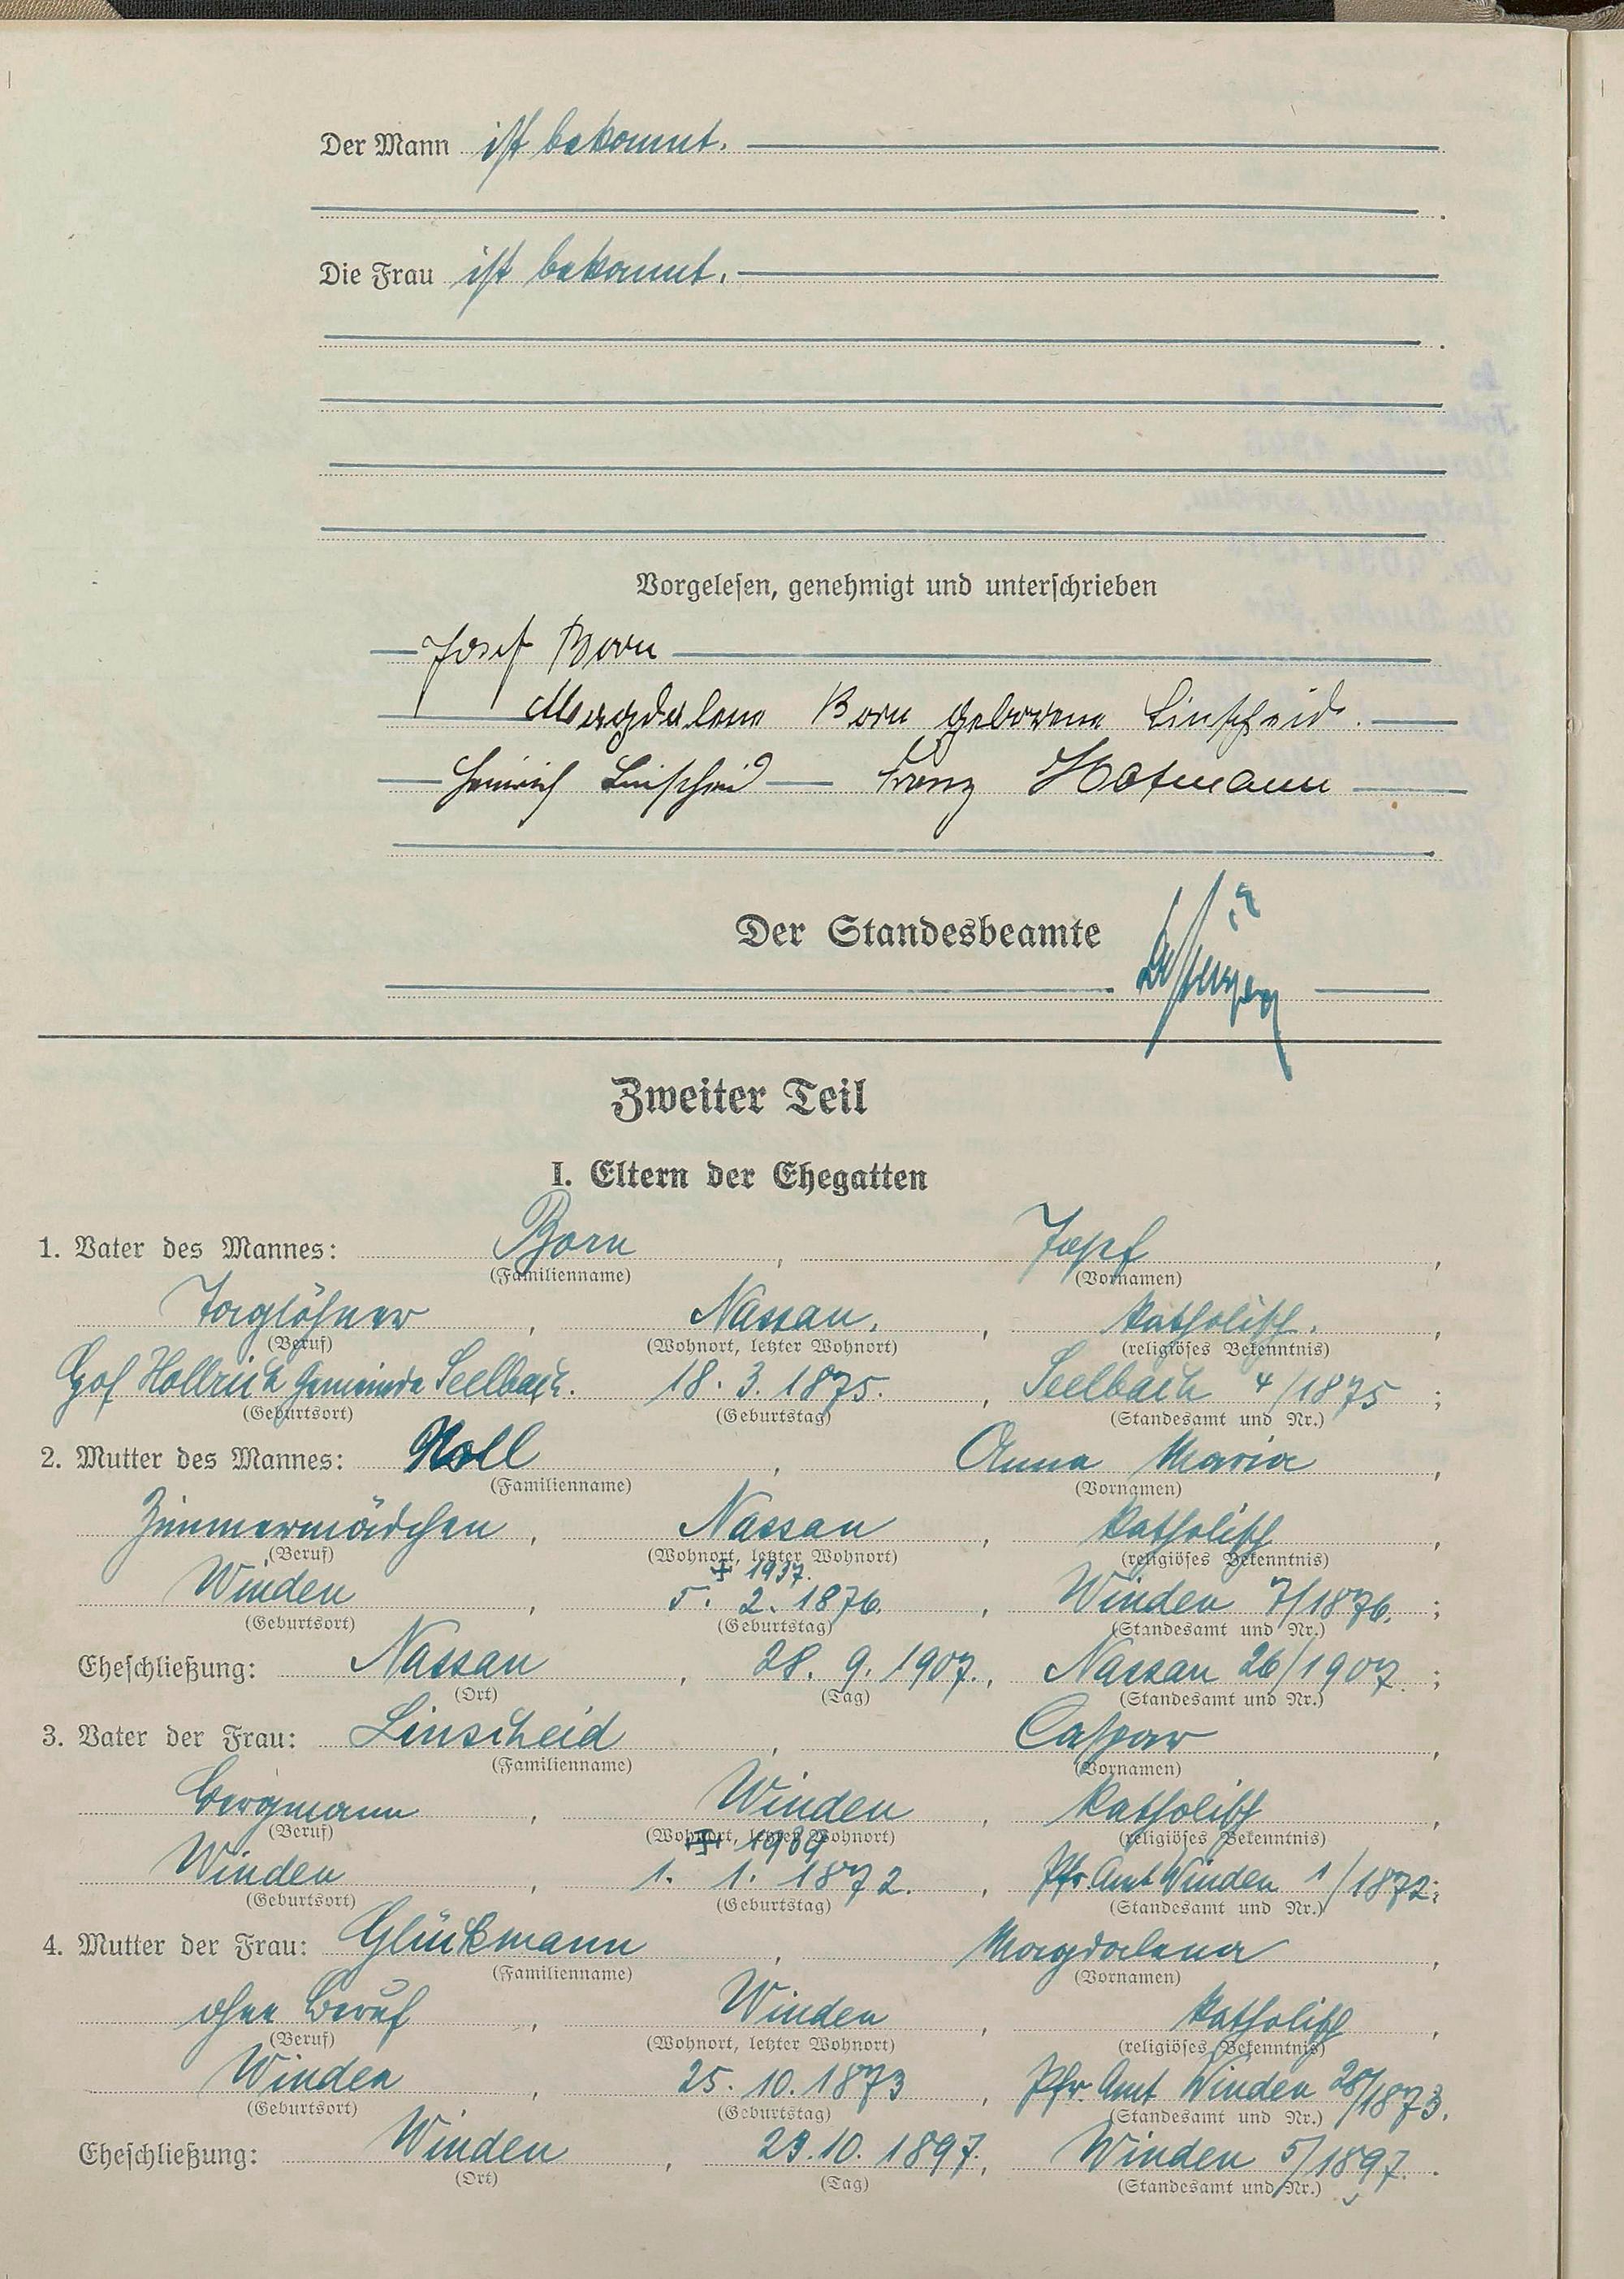 Der Mann ist bekannt.
Die Frau ist bekannt.
Vorgelesen, genehmigt und unterschrieben
Josef Born
Magdalene Born geborene Linscheid.
Heinrich Linscheid Franz Hofmann
Der Standesbeamte
Zweiter Teil
I. Eltern der Ehegatten
1. Vater des Mannes: Born, Josef,
(Familienname) (Vornamen)
Taglöhner, Nassau., katholisch.,
(Beruf) (Wohnort, letzter Wohnort) (religiöses Bekenntnis)
Hof Hollrich Gemeinde Seelbach. 18. 3. 1875., Seelbach 4/1875;
(Geburtsort) (Geburtstag) (Standesamt und Nr.)
2. Mutter des Mannes: Noll, Anna Maria,
(Familienname) (Vornamen)
Zimmermädchen, Nassau, katholisch,
(Beruf) (Wohnort, letzter Wohnort) (religiöses Bekenntnis)
+ 1937.
Winden, 5. 2. 1876., Winden 7/1876.;
(Geburtsort) (Geburtstag) (Standesamt und Nr.)
Eheschließung: Nassau, 28. 9. 1907., Nassau 26/1907.;
(Ort) (Tag) (Standesamt und Nr.)
3. Vater der Frau: Linscheid, Caspar,
(Familienname) (Vornamen)
Bergmann, Winden, katholisch,
(Beruf) (Wohnort, letzter Wohnort) (religiöses Bekenntnis)
+ 1939
Winden, 1. 1. 1872., Pfr. Amt Winden 1/1872;
(Geburtsort) (Geburtstag) (Standesamt und Nr.)
4. Mutter der Frau: Glückmann, Magdalena,
(Familienname) (Vornamen)
ohne Beruf, Winden, katholisch,
(Beruf) (Wohnort, letzter Wohnort) (religiöses Bekenntnis)
Winden, 25. 10. 1873, Pfr. Amt Winden 28/1873.
(Geburtsort) (Geburtstag) (Standesamt und Nr.)
Eheschließung: Winden, 29. 10. 1897., Winden 5/1897.
(Ort) (Tag) (Standesamt und Nr.)